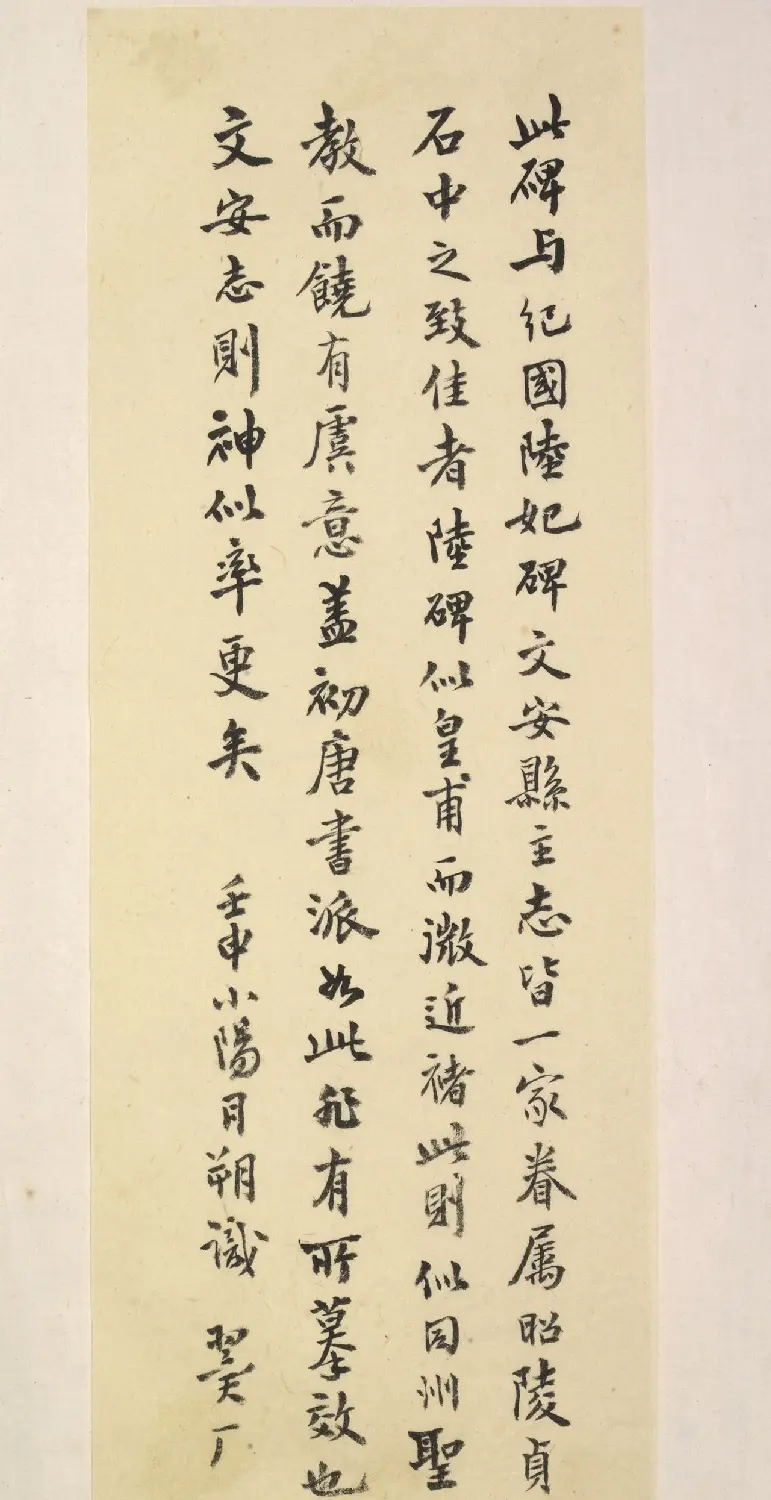 此碑与纪國陸妃碑文安縣主志皆一家眷属昭陵貞
石中之致佳者陸碑似皇甫而微近褚此則似同州聖
教而饒有虞意蓋初唐書派如此非有所摹效也
文安志則神似率更矣 壬申小陽月朔識